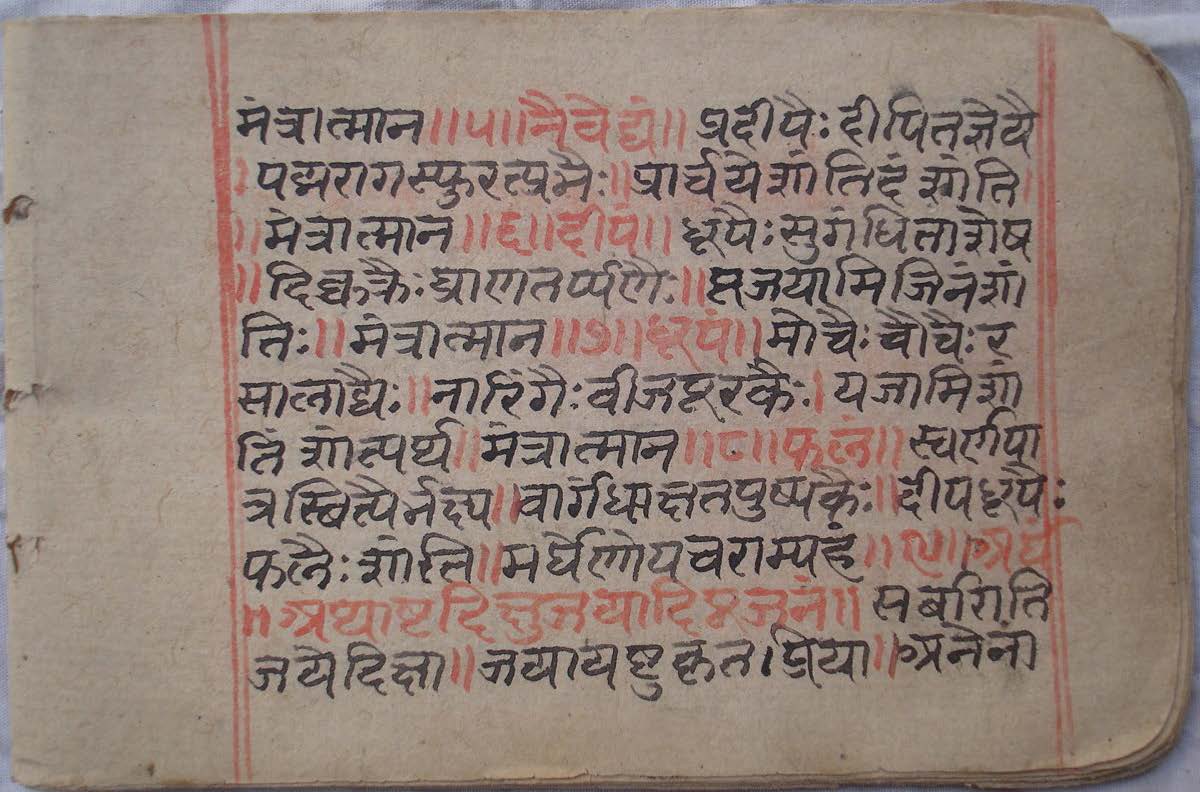 मंत्रात्मान॥५॥नैवेद्यं॥ प्रदीपैः दीपितज्ञेयै
। पद्मरागस्फुरत्प्रभैः॥ प्रार्चये शांतिदं शांति।
॥मंत्रात्मान॥६॥दीपं॥ धूपैः सुगंधिताशेष
॥दिक्चक्रैः घ्राणतर्प्पणैः॥ पूजयामि जिनं शां
तिः॥मंत्रात्मान॥७॥धूपं॥ मोचैः चोचैः र
सालाद्यैः॥ नारिंगैः वीजपूरकैः। यजामि शां
तिं शांत्यर्थ॥ मंत्रात्मान॥८॥फलं॥ स्वर्णपा
त्र वार्गंधाक्षतपुष्पकैः॥ दीपधूपैः
फलैः शांति॥
॥अथाष्टदिक्षुजयादिपूजनं॥
जये दिक्षा॥ जयाद्यष्ट ॥अनेनां